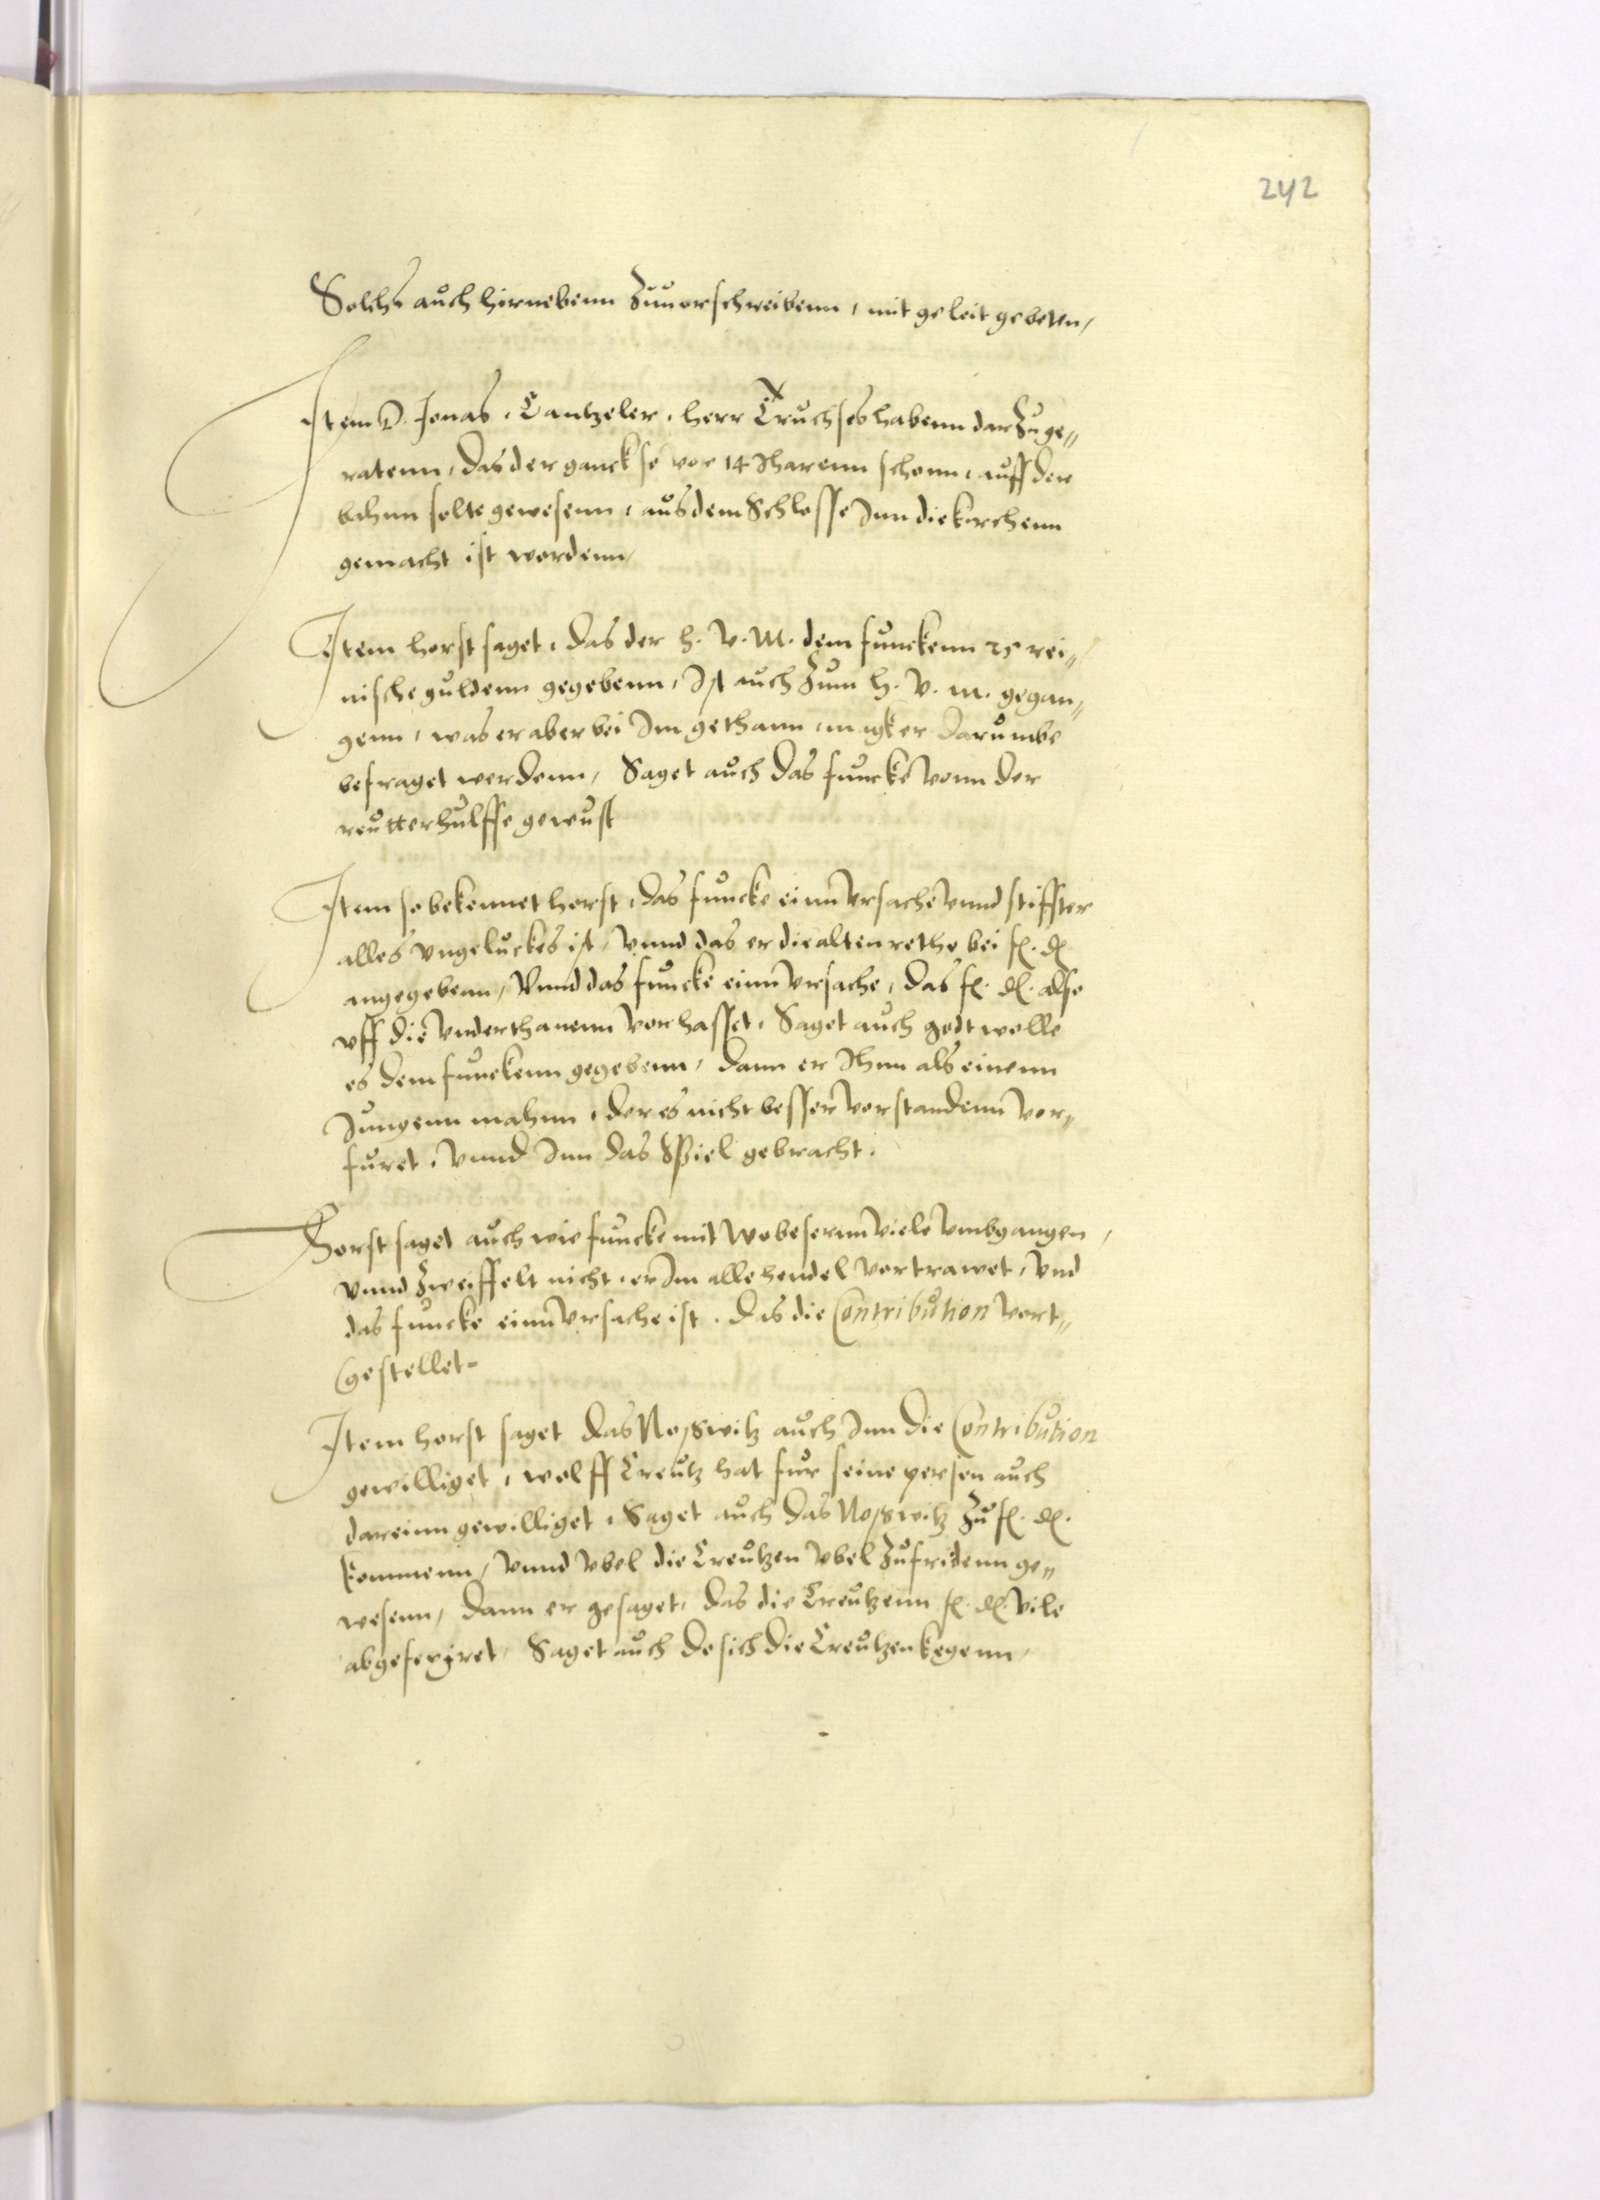 242
Solchs auch hirnebenn Zuuorschreibenn, mit geleit gebeten,
Item D. Jonas, Cantzeler, herr Truchses habenn dar Zu ge„
ratenn, das der ganck so vor 14 Iharenn schonn, auff der
bahnn solte gewesenn, aus dem Schlosse Inn die kirchenn
gemacht ist wordenn,
Item horst saget, das der H. V. M. dem funckenn 25 rei„
nische guldenn gegebenn, Ist auch Zum H. V. M. gegan„
genn, was er aber bei Im gethann magk er darumbe
befraget werdenn, Saget auch das funcke vonn der
reutterhulffe gewust
Item so bekennet horst, das funcke einn vrsache vnnd stiffter
alles vngeluckes ist, vnnd das er die alten rethe bei f. d.
angegebenn, Vnnd das funcke einn vrsache, das f. d. also
vff die vnderthanenn vorhasset, Saget auch godt wolle
es dem funckenn gegebenn, dann er Ihnn als einenn
Jungenn mahnn, der es nicht besser vorstandenn vor„
furet, vnnd Inn das Spiel gebracht.
Horst saget auch wie funcke mit Wobesernn viele vmbgangen,
vnnd Zweiffelt nicht, er Im alle hendel vortrawet, vnd
das funcke einn vrsache ist, das die Contribution vort„
gestellet-
Item horst saget das Noßwitz auch Inn die Contribution
gewilliget, wolff Creutz hat fur seine person auch
dareinn gewilliget, Saget auch das Noßwitz Zu f. d.
kommenn, vnnd vbel die Creutzen vbel Zufridenn ge„
wesenn, dann er gesaget, das die Creutzenn f. d. vile
abgefexiret, Saget auch do sich die Creutzen kegenn,